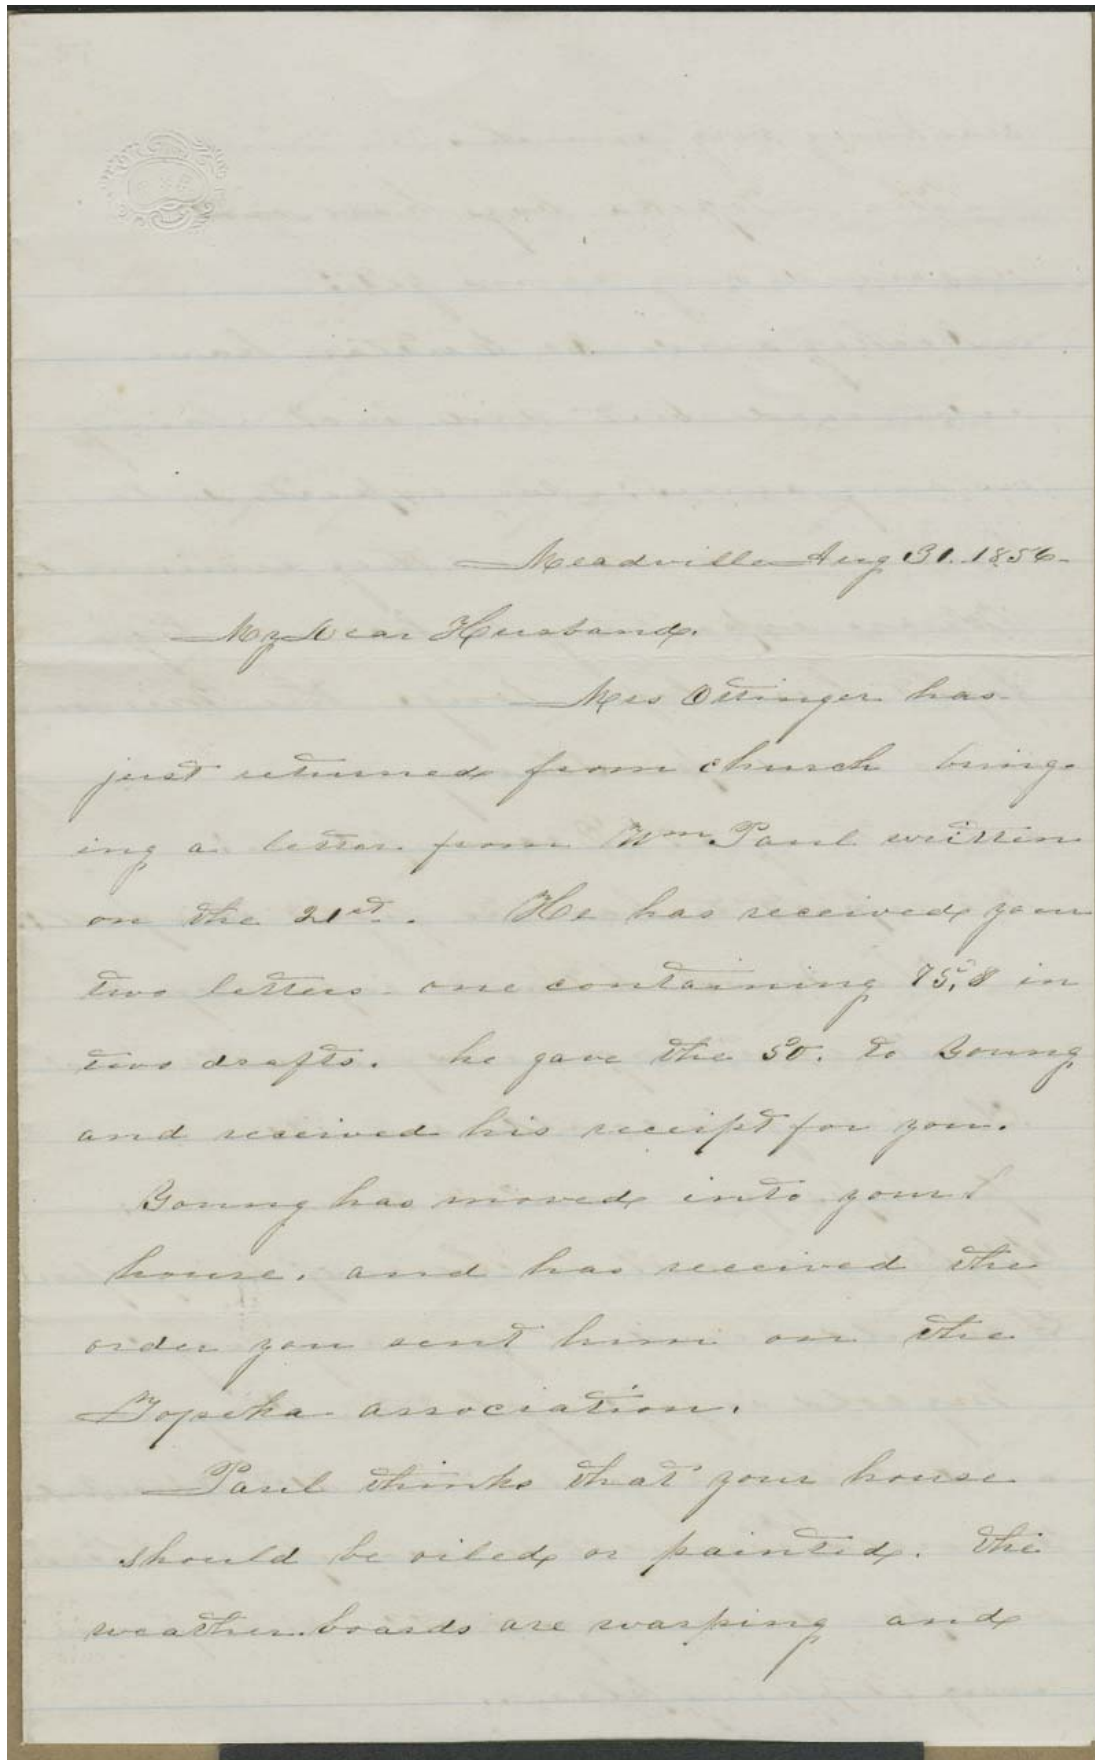 Meadville Aug 31. 1856
My Dear Husband.
Mrs Ottinger has
just returned from church bring-
ing a letter from Wm Paul written
on the 21st. He has received your
two letters one containing 75,8 in
two drafts. he gave the 50. to Young
and received his receipt for you.
Young has moved into your
house, and has received the
order you sent him on the
Topeka association.
Paul thinks that your house
should be oiled or painted. the
weather.boards are warping and